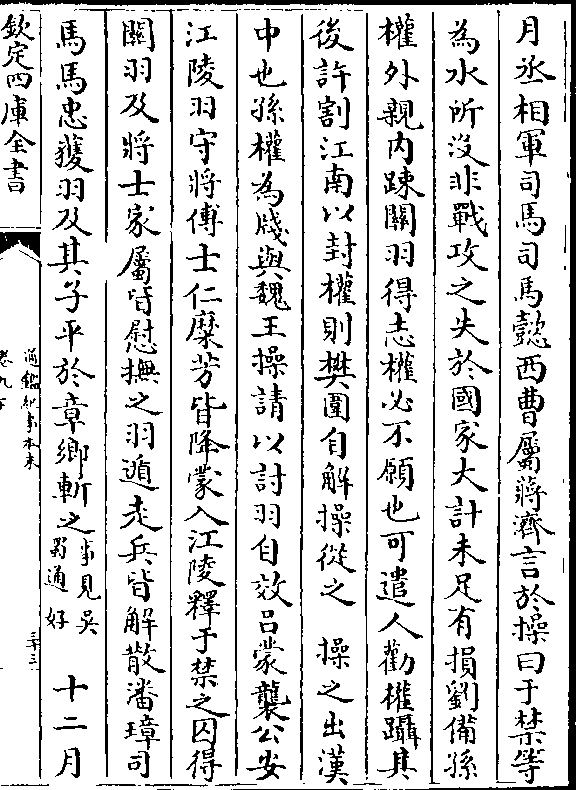 月丞相軍司馬司馬懿西曹屬蔣濟言於操曰于禁等
為水所沒非戰攻之失於國家大計未足有損劉備孫
權外親內疎關羽得志權必不願也可遣人勸權躡其
後許割江南以封權則樊圍自解操從之　操之出漢
中也孫權為牋與魏王操請以討羽自效呂蒙襲公安
江陵羽守將傅士仁糜芳皆降蒙入江陵釋于禁之囚得
關羽及將士家屬皆慰撫之羽遁走兵皆解散潘璋司
馬馬忠獲羽及其子平於章鄉斬之事見吳蜀通好　十二月
欽定四庫全書
通鑑紀事本末
卷九下
三十三